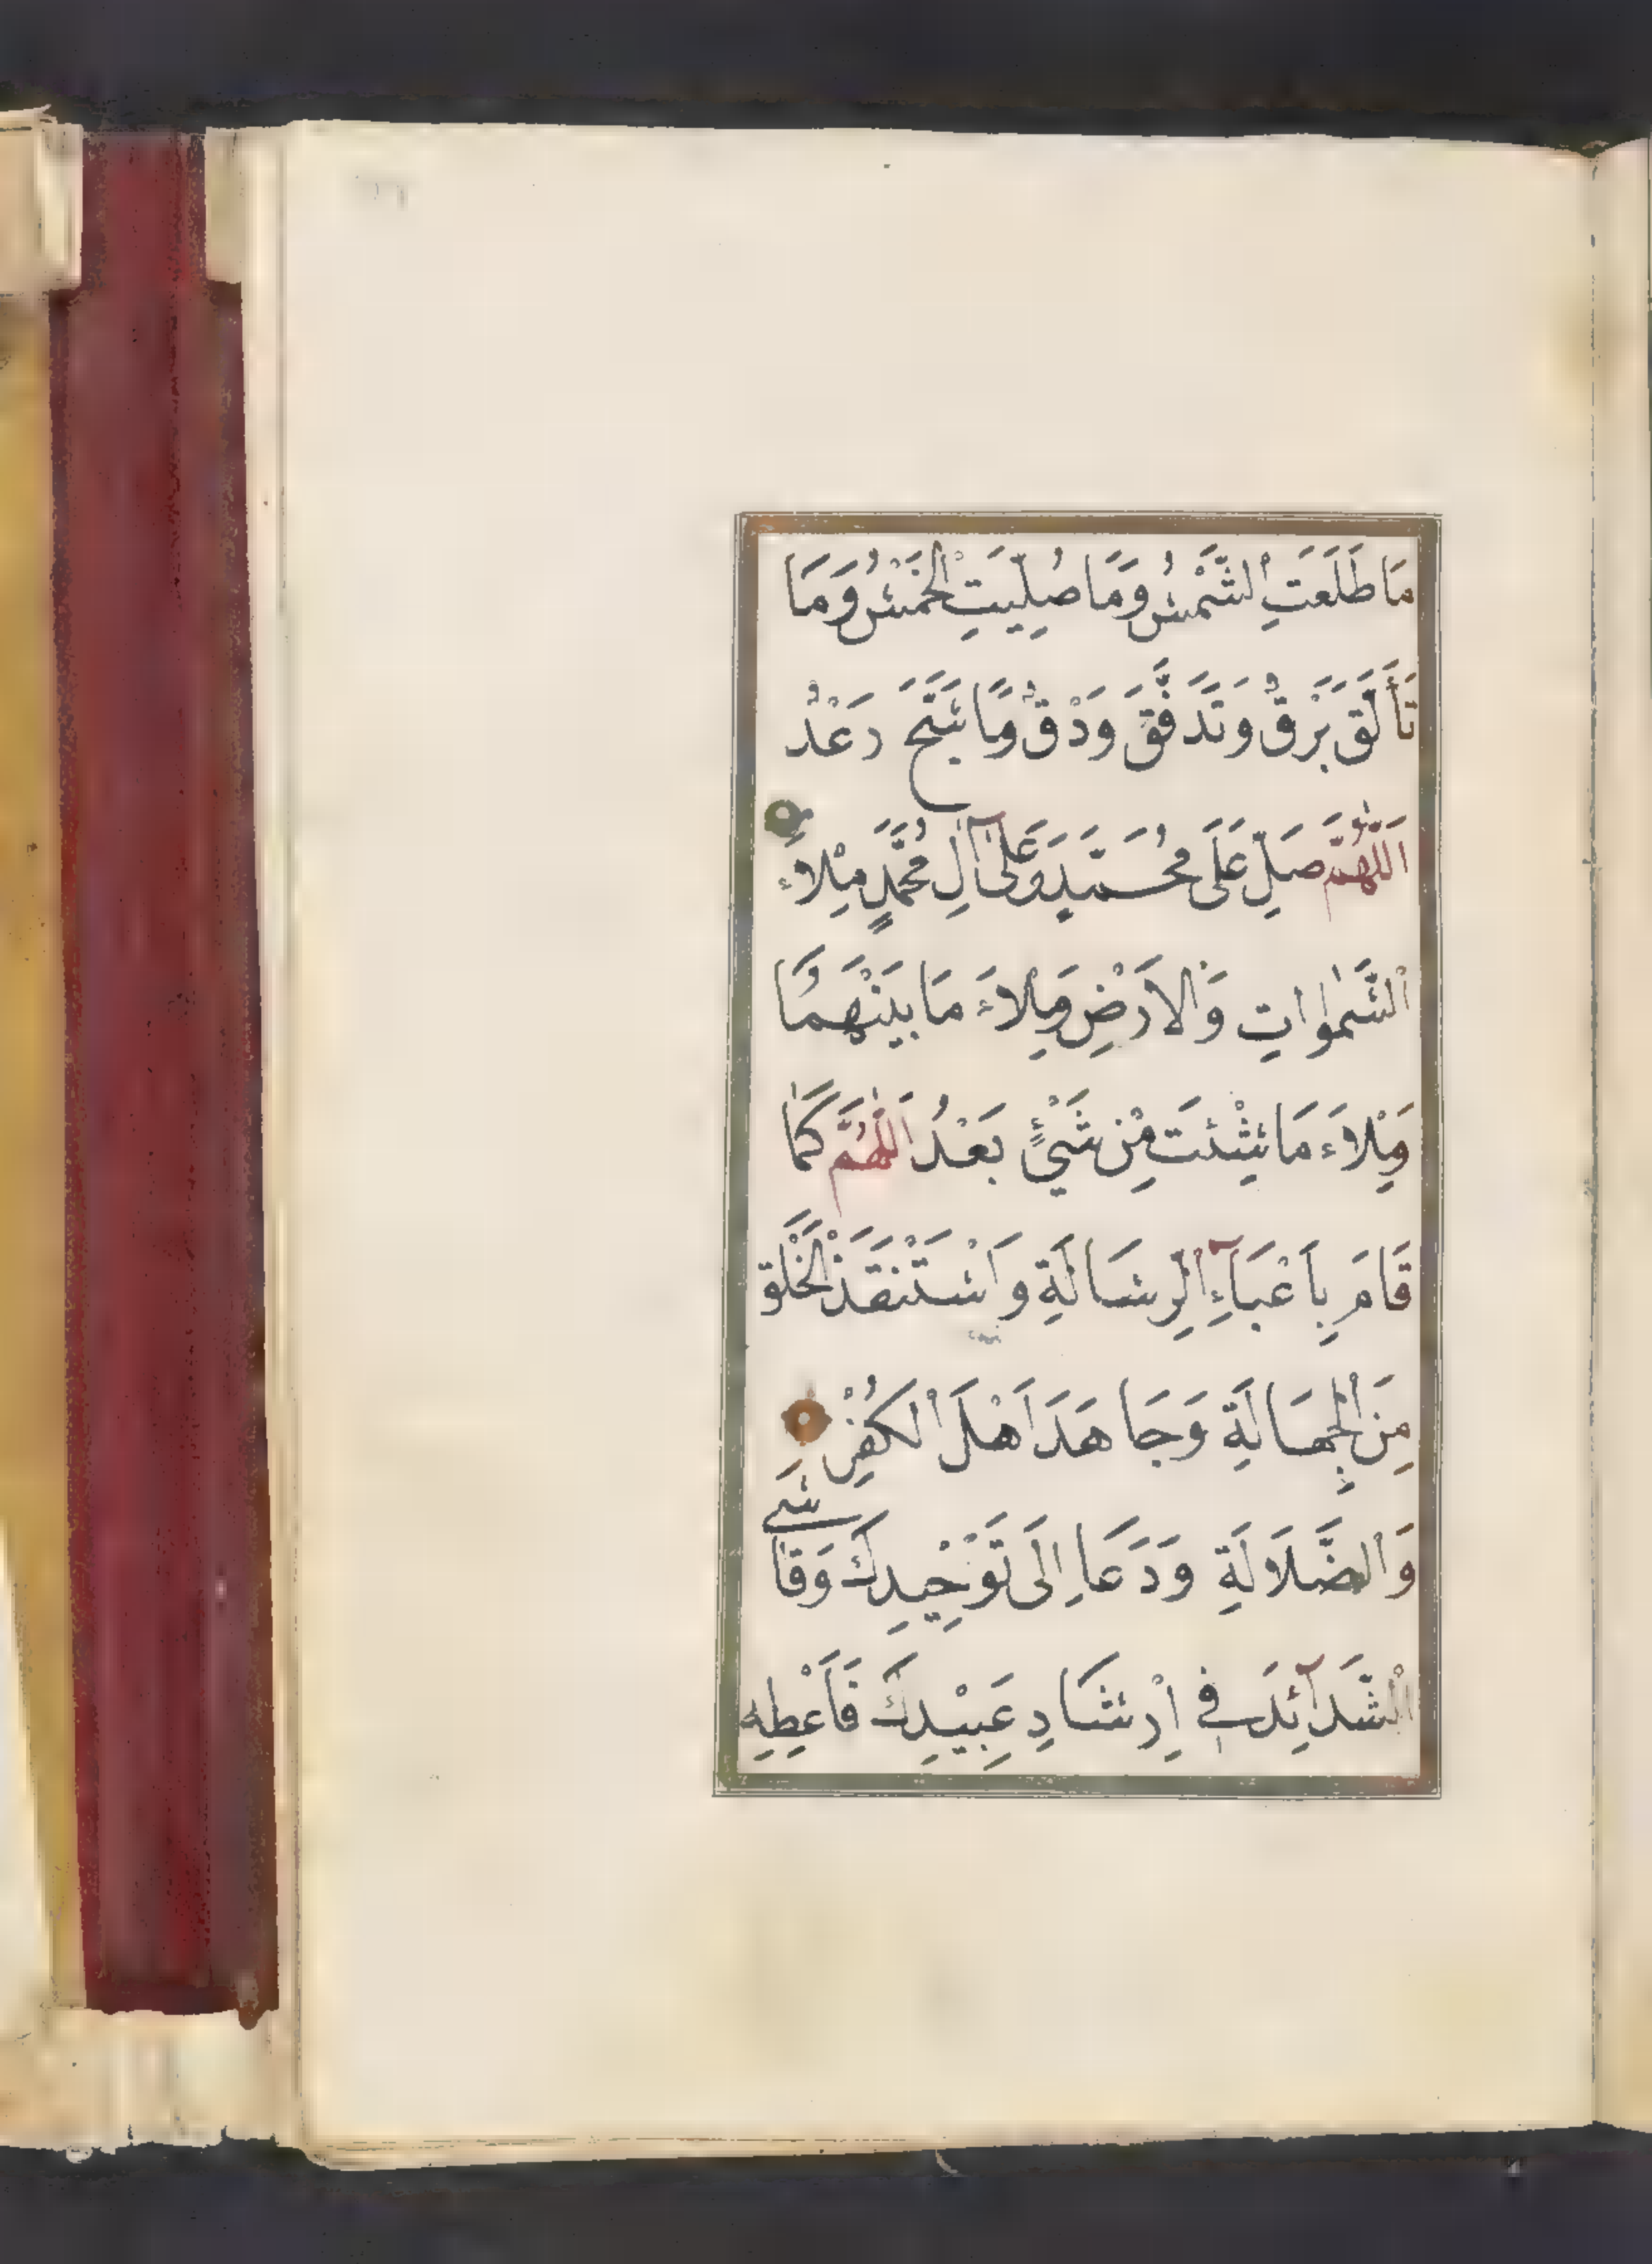 مَا طَلَعَتِ الشَّمْسُ وَمَا صُلِّيَتِ الْخَمْسُ وَمَا
تَأَلَّقَ بَرْقٌ وَتَدَفَّقَ وَدْقٌ وَمَا سَبَّحَ رَعْدٌ
اَللّٰهُمَّ صَلِّ عَلَى مُحَمَّدٍ وَعَلَى آلِ مُحَمَّدٍ مِلْاَءَ
السَّمٰوَاتِ وَالْاَرْضِ وَمِلْاَءَ مَا بَيْنَهُمَا
وَمِلْاَءَ مَا شِئْتَ مِنْ شَيْءٍ بَعْدُ اَللّٰهُمَّ كَمَا
قَامَ بِاَعْبَآءِ الرِّسَالَةِ وَاسْتَنْقَذَ الْخَلْقَ
مِنَ الْجَهَالَةِ وَجَاهَدَ اَهْلَ الْكُفْرِ
وَالضَّلَالَةِ وَدَعَا اِلَى تَوْحِيدِكَ وَقَاسَى
الشَّدَآئِدَ فِي اِرْشَادِ عَبِيْدِكَ فَاَعْطِهِ